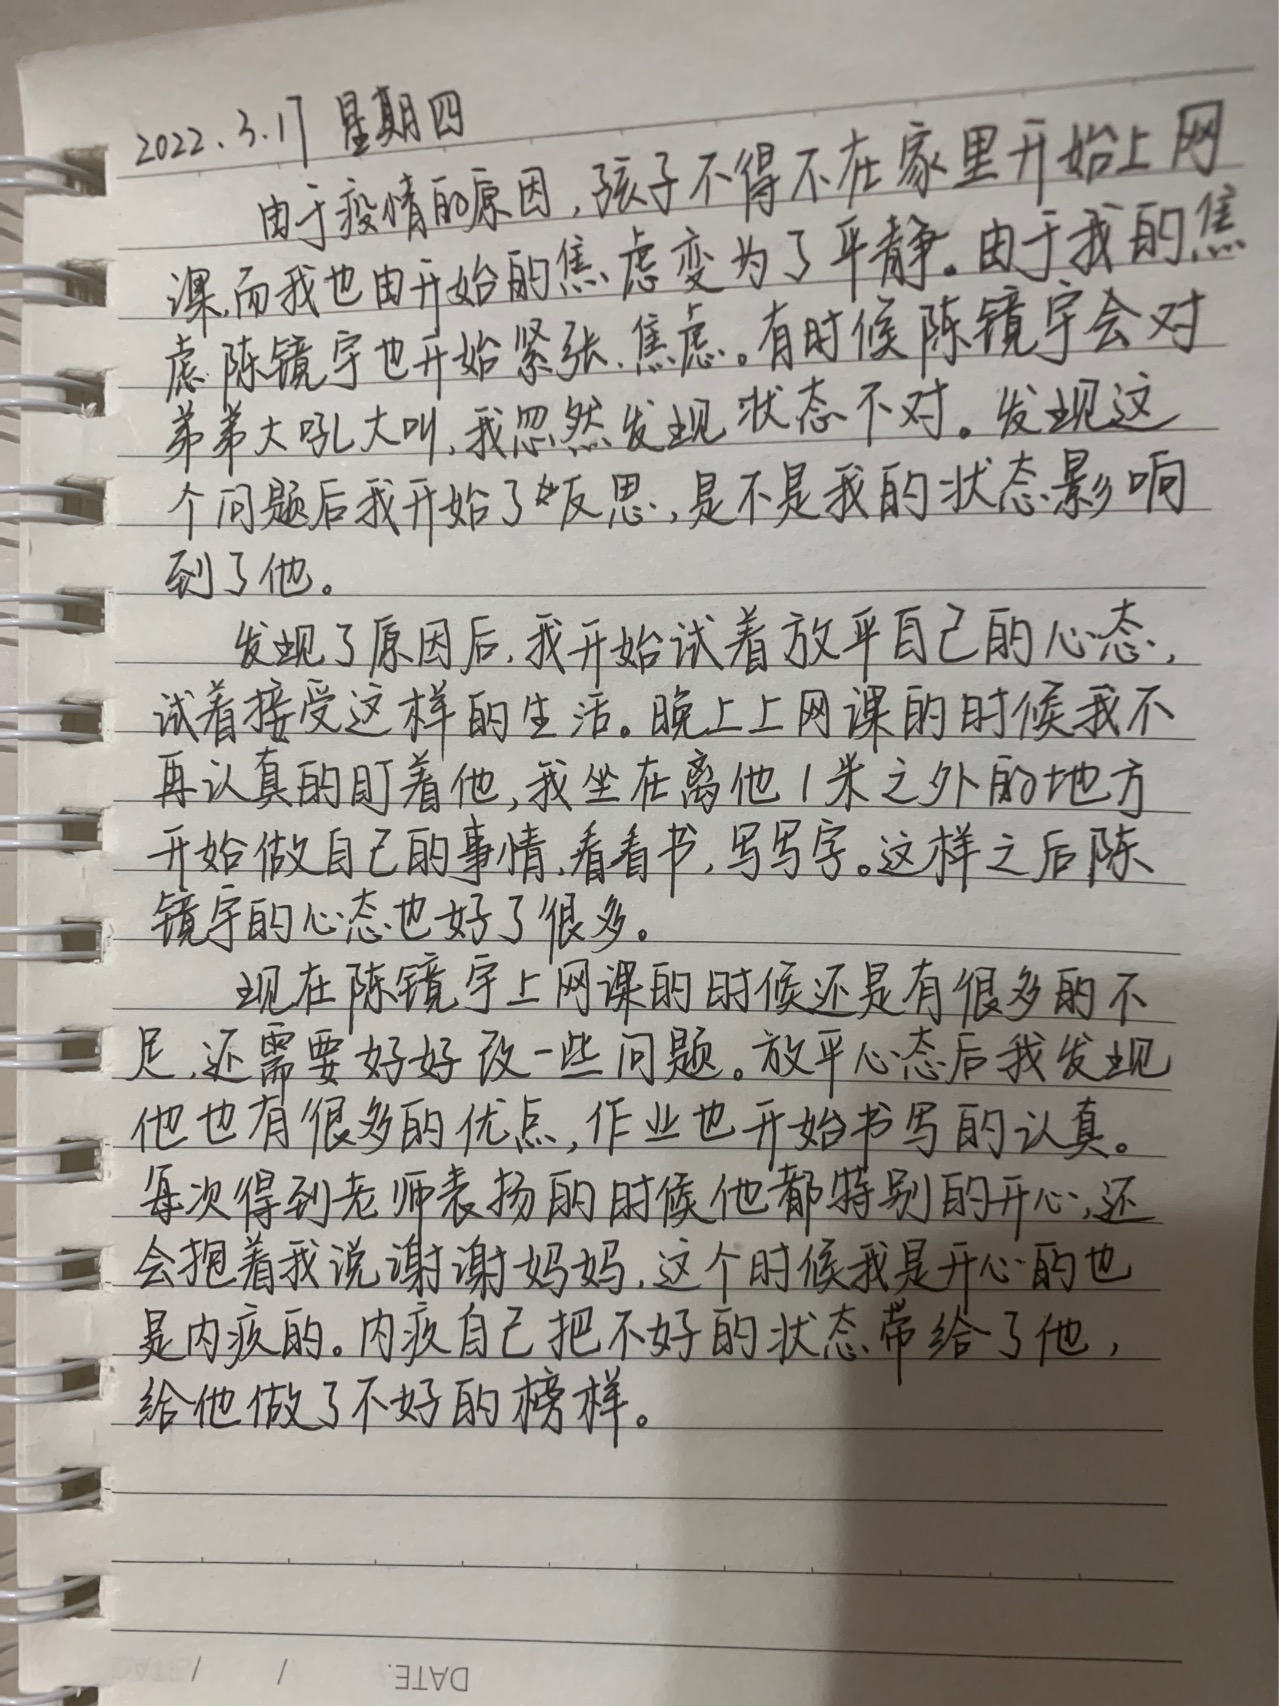 2022.3.17 星期四
由于疫情的原因,孩子不得不在家里开始上网
课,而我也由开始的焦虑变为了平静。由于我的焦
虑陈镜宇也开始紧张、焦虑。有时候陈镜宇会对
弟弟大吼大叫,我忽然发现状态不对。发现这
个问题后我开始了反思,是不是我的状态影响
到了他。
发现了原因后,我开始试着放平自己的心态,
试着接受这样的生活。晚上上网课的时候我不
再认真的盯着他,我坐在离他1米之外的地方
开始做自己的事情,看看书,写写字。这样之后陈
镜宇的心态也好了很多。
现在陈镜宇上网课的时候还是有很多的不
足,还需要好好改一些问题。放平心态后我发现
他也有很多的优点,作业也开始书写的认真。
每次得到老师表扬的时候他都特别的开心,还
会抱着我说谢谢妈妈,这个时候我是开心的也
是内疚的。内疚自己把不好的状态带给了他,
给他做了不好的榜样。
DATE. / /